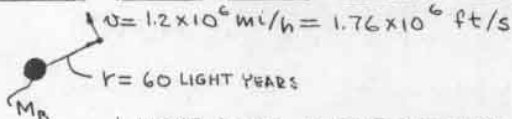 v = 1.2 x 10⁶ mi/h = 1.76 x 10⁶ ft/s
r = 60 LIGHT YEARS
M_B